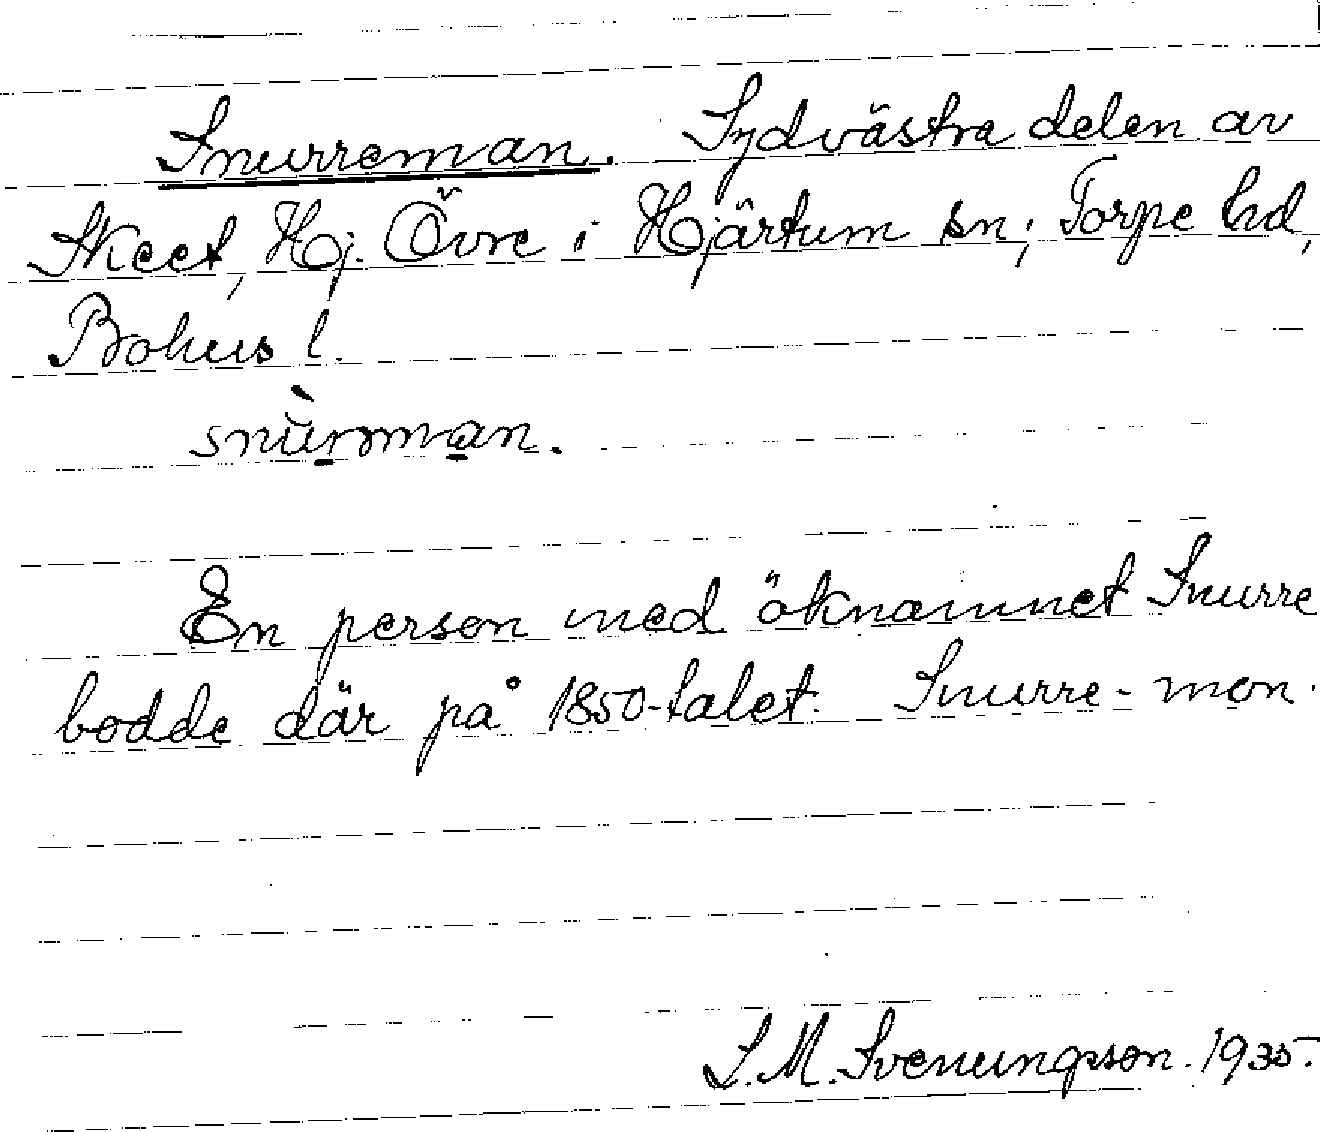 Snurreman. Sydvästra delen av
Skeet, Hj. Övre i Hjärtum sn; Torpe hd,
Bohus l.
snùrmman.
En person med öknamnet Snurre
bodde där på 1850-talet. Snurre-mon.
S. M. Svenungsson. 1935.